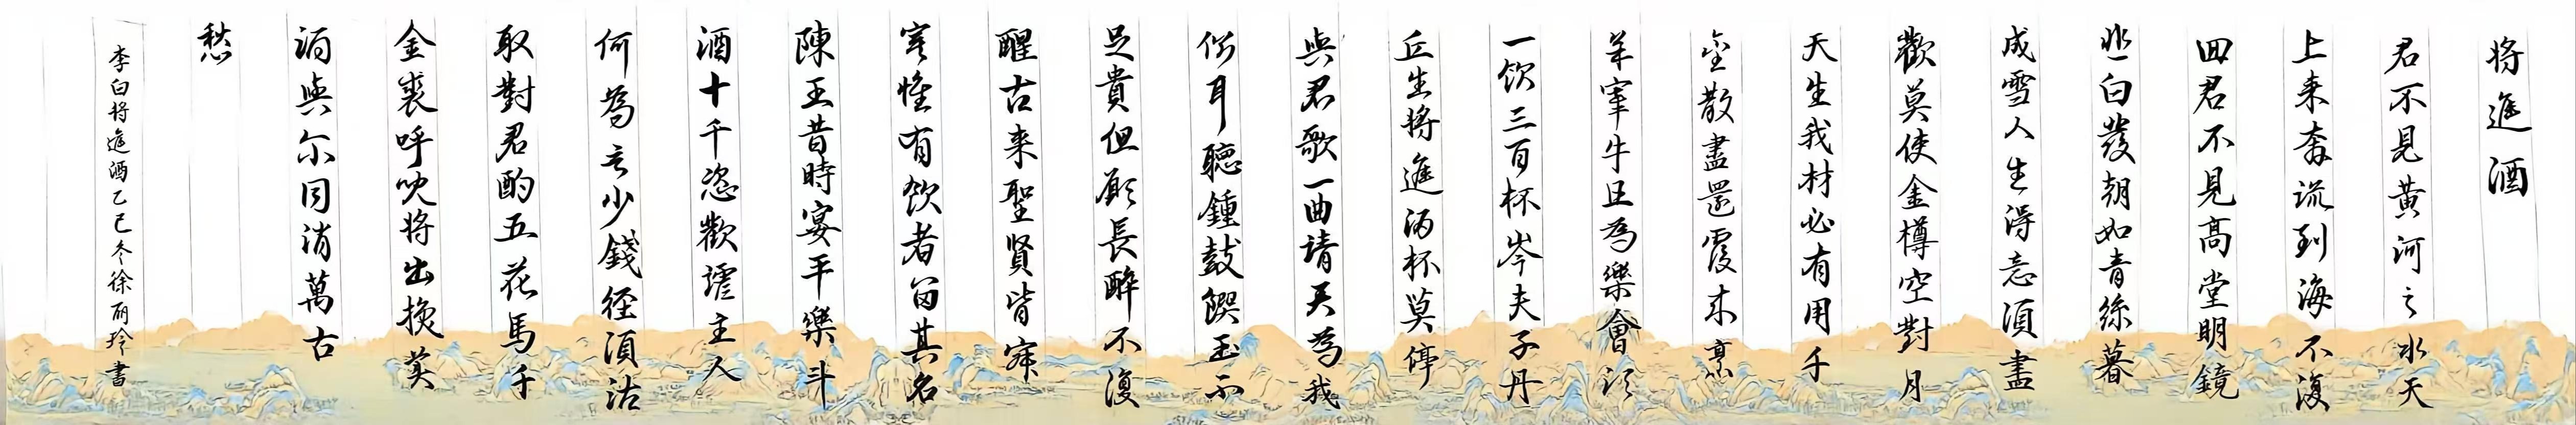 将進酒
君不見黄河之水天
上来奔流到海不復
回君不見高堂明鏡
悲白發朝如青絲暮
成雪人生得意須盡
歡莫使金樽空對月
天生我材必有用千
金散盡還復来烹
羊宰牛且為樂會須
一飲三百杯岑夫子丹
丘生将進酒杯莫停
與君歌一曲請君為我
側耳聽鍾鼓饌玉不
足貴但願長醉不復
醒古来聖賢皆寂
寞惟有飲者留其名
陳王昔時宴平樂斗
酒十千恣歡謔主人
何為言少錢徑須沽
取對君酌五花馬千
金裘呼兒将出換美
酒與尔同消萬古
愁
李白将進酒乙巳冬徐丽玲書